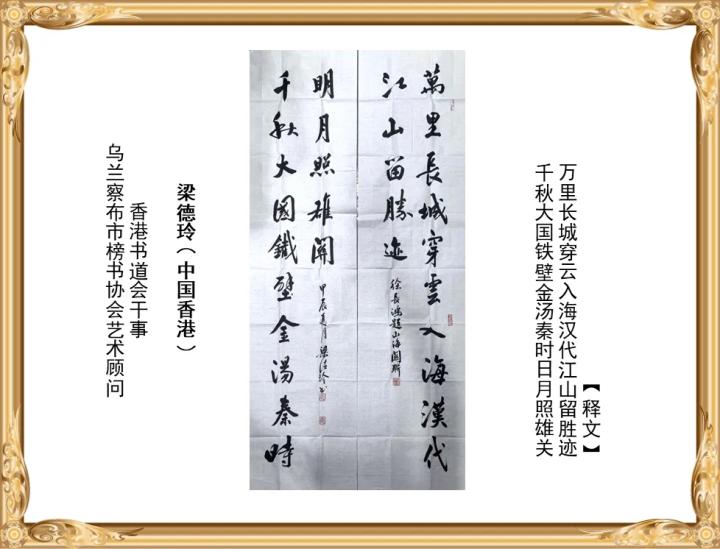 【释文】
万里长城穿云入海汉代江山留胜迹
千秋大国铁壁金汤秦时日月照雄关
萬里長城穿雲入海漢代
江山留勝迹
徐長鴻題山海關聯
千秋大國鐵壁金湯秦時
明月照雄關
甲辰夏月梁德玲书
梁德玲（中国香港）
香港书道会干事
乌兰察布市榜书协会艺术顾问